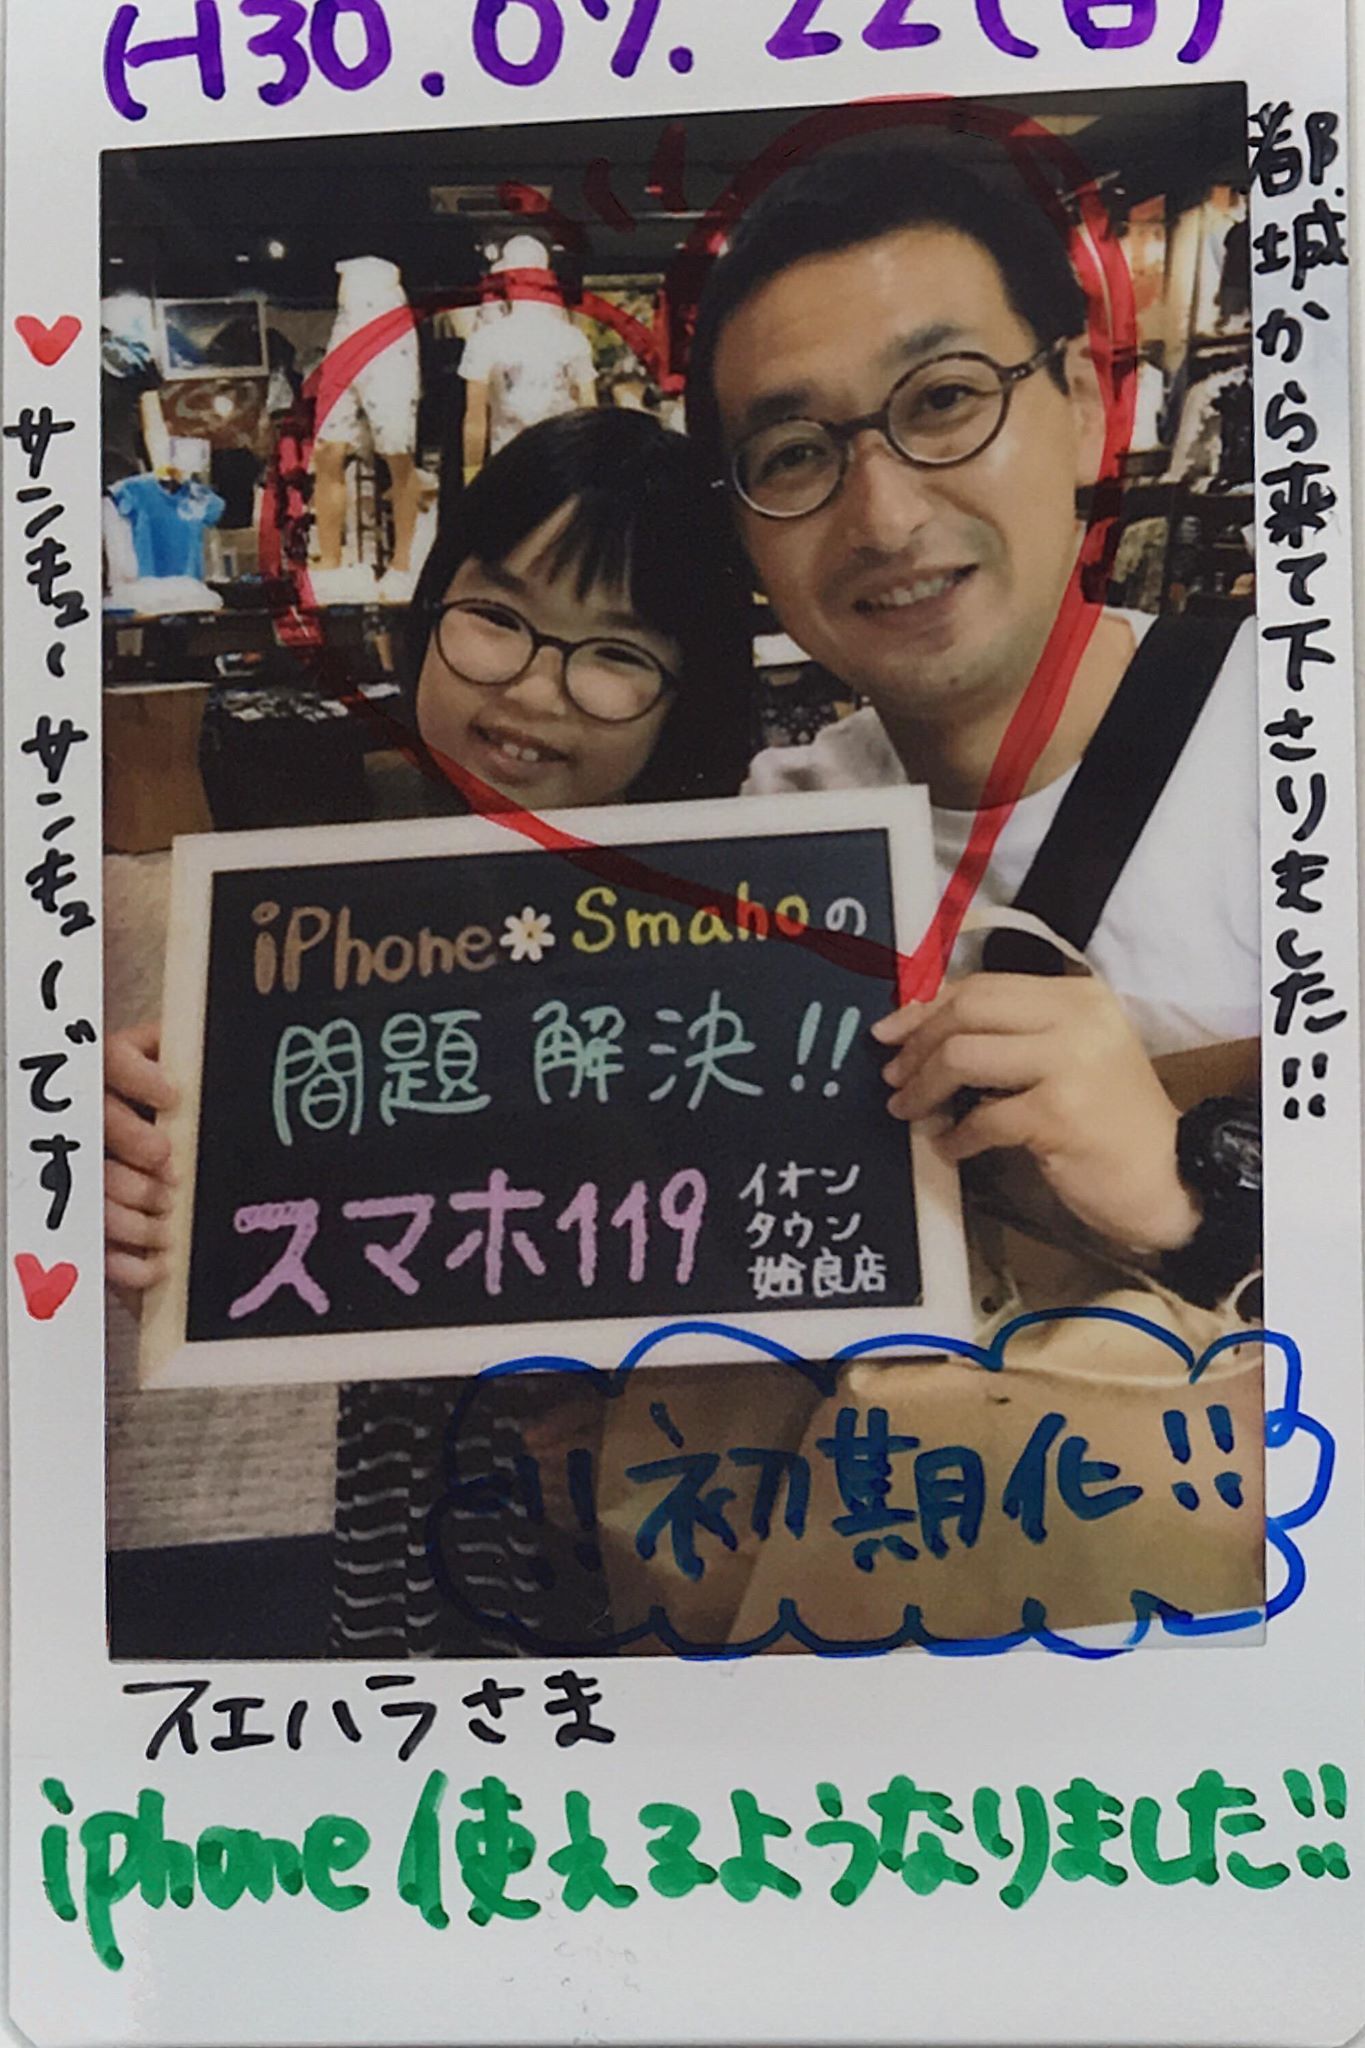 H30.07.22(日)
都城から来て下さりました!!
♥サンキューサンキューです♥
iPhone✽Smahoの
問題解決!!
スマホ119
イオン
タウン
姶良店
!!初期化!!
スエハラさま
iphone使えるようなりました!!